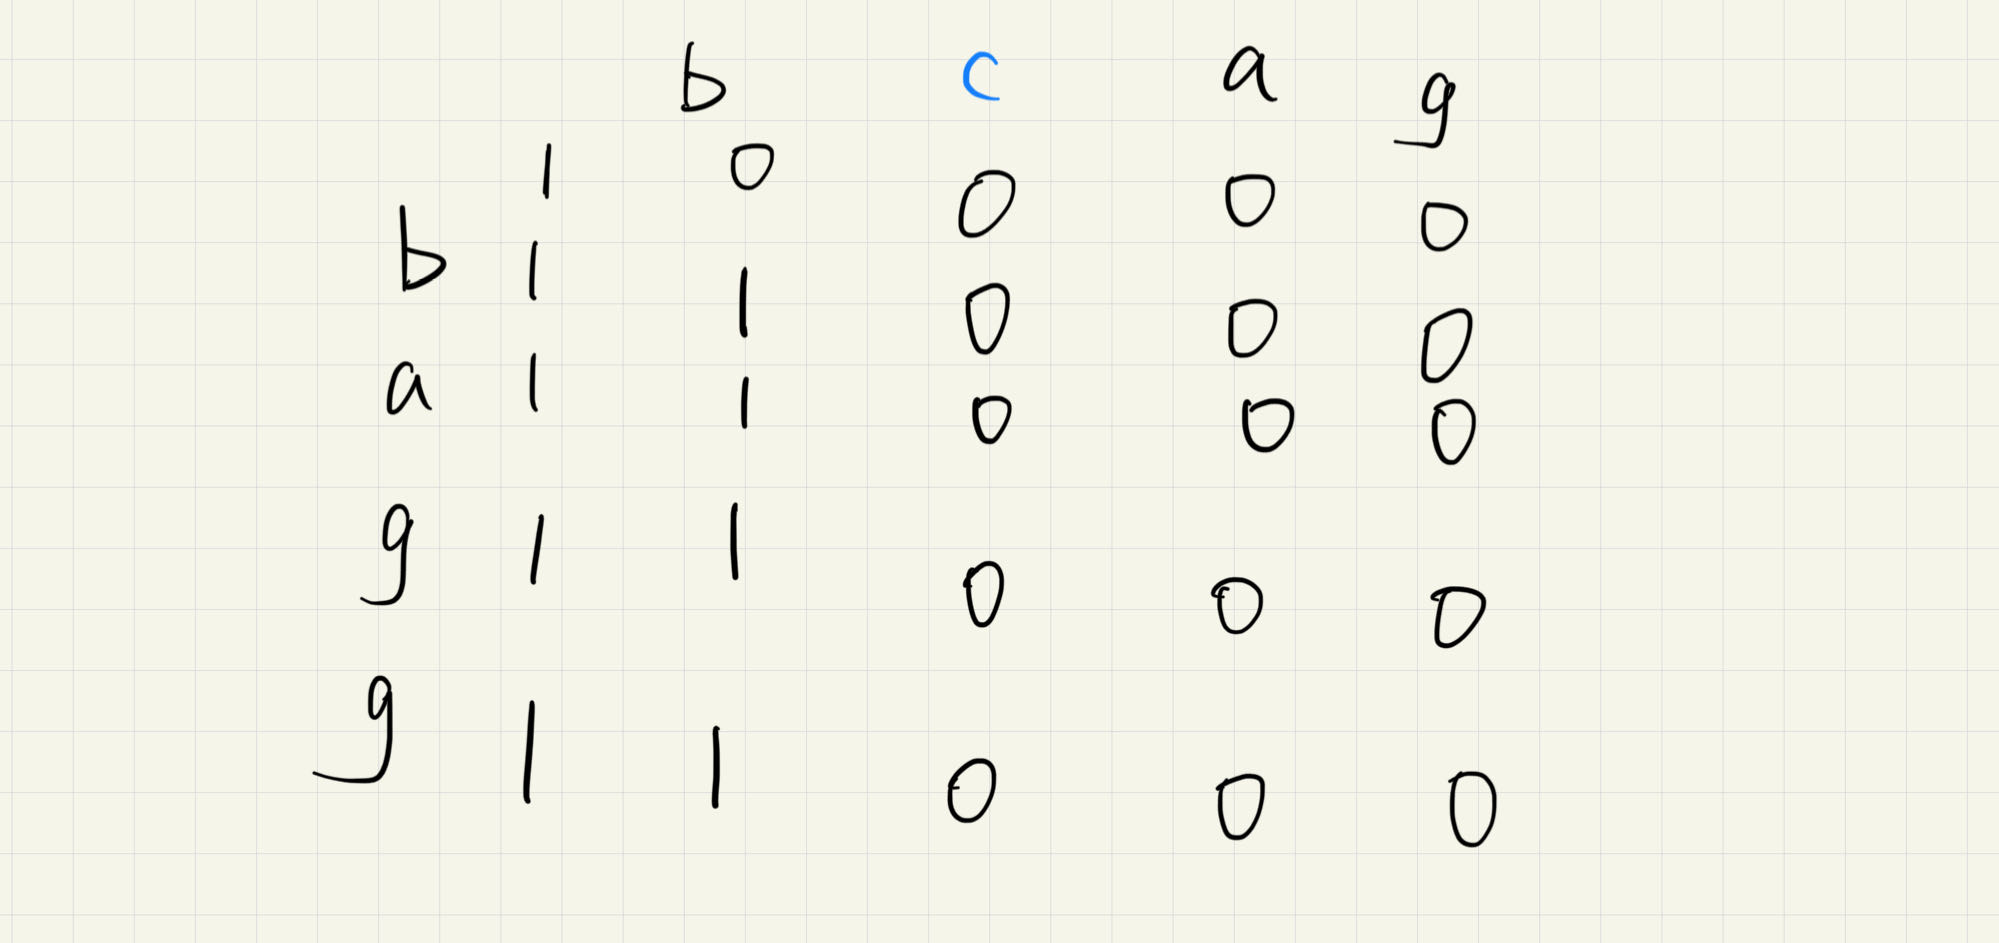 b c a g
1 0 0 0 0
b 1 1 0 0 0
a 1 1 0 0 0
g 1 1 0 0 0
g 1 1 0 0 0